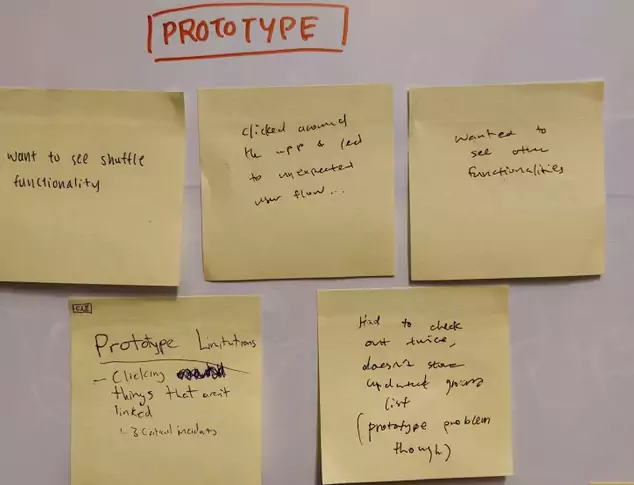 PROTOTYPE
want to see shuffle
functionality
Clicked around
the app & led
to unexpected
user flow...
Wanted to
see other
functionalities
Prototype Limitations
- Clicking
things that aren't
linked
↳ 3 Critical incidents
Had to check
out twice,
doesn't store
updated grocery
list
(prototype problem
though)